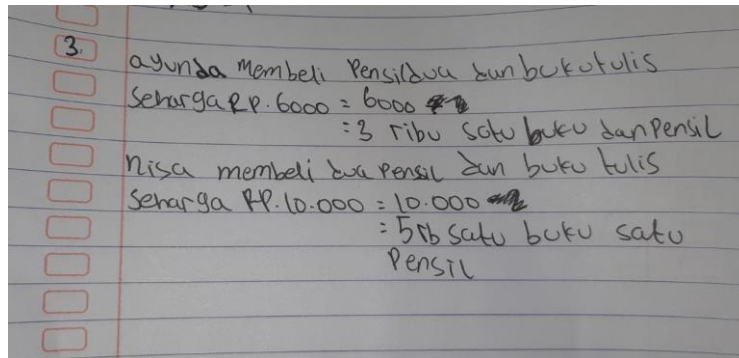 3.
ayunda membeli Pensil dua dan buku tulis
seharga RP. 6000 = 6000
= 3 ribu satu buku dan Pensil
nisa membeli dua Pensil dan buku tulis
seharga RP. 10.000 = 10.000
= 5 rb satu buku satu
Pensil